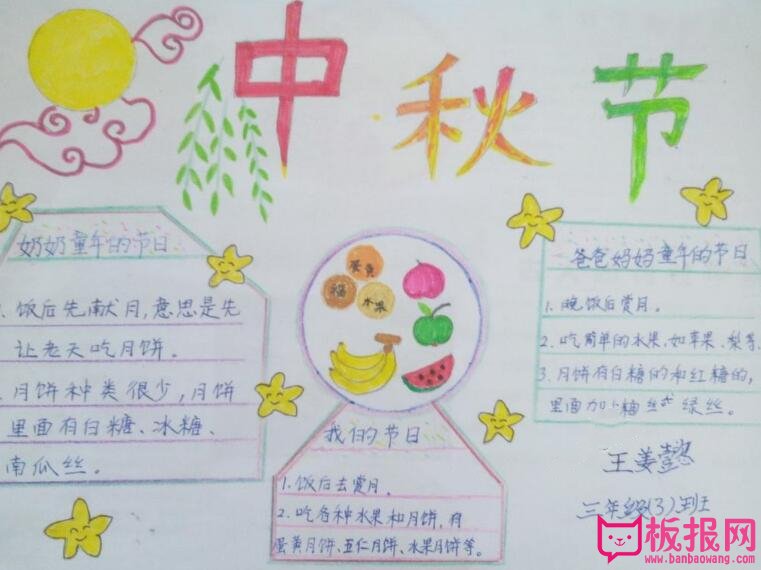 中秋节
奶奶童年的节日
1. 饭后先献月,意思是先
让老天吃月饼。
2. 月饼种类很少,月饼
里面有白糖、冰糖、
南瓜丝。
蛋黄
福
水果
我们的节日
1. 饭后去赏月。
2. 吃各种水果和月饼,有
蛋黄月饼、五仁月饼、水果月饼等。
爸爸妈妈童年的节日
1. 晚饭后赏月。
2. 吃简单的水果,如苹果、梨等
3. 月饼有白糖的和红糖的,
里面加 糖丝 绿丝。
王姜懿
三年级(3)班
板报网
www.banbaowang.com